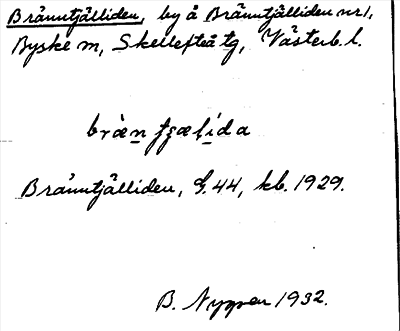 Bränntjälliden, by å Bränntjälliden nr 1,
Byske sn, Skellefteå tg, Västerb. l.
Bränntjälliden, S. 44, kb. 1929.
B. Nygren 1932.